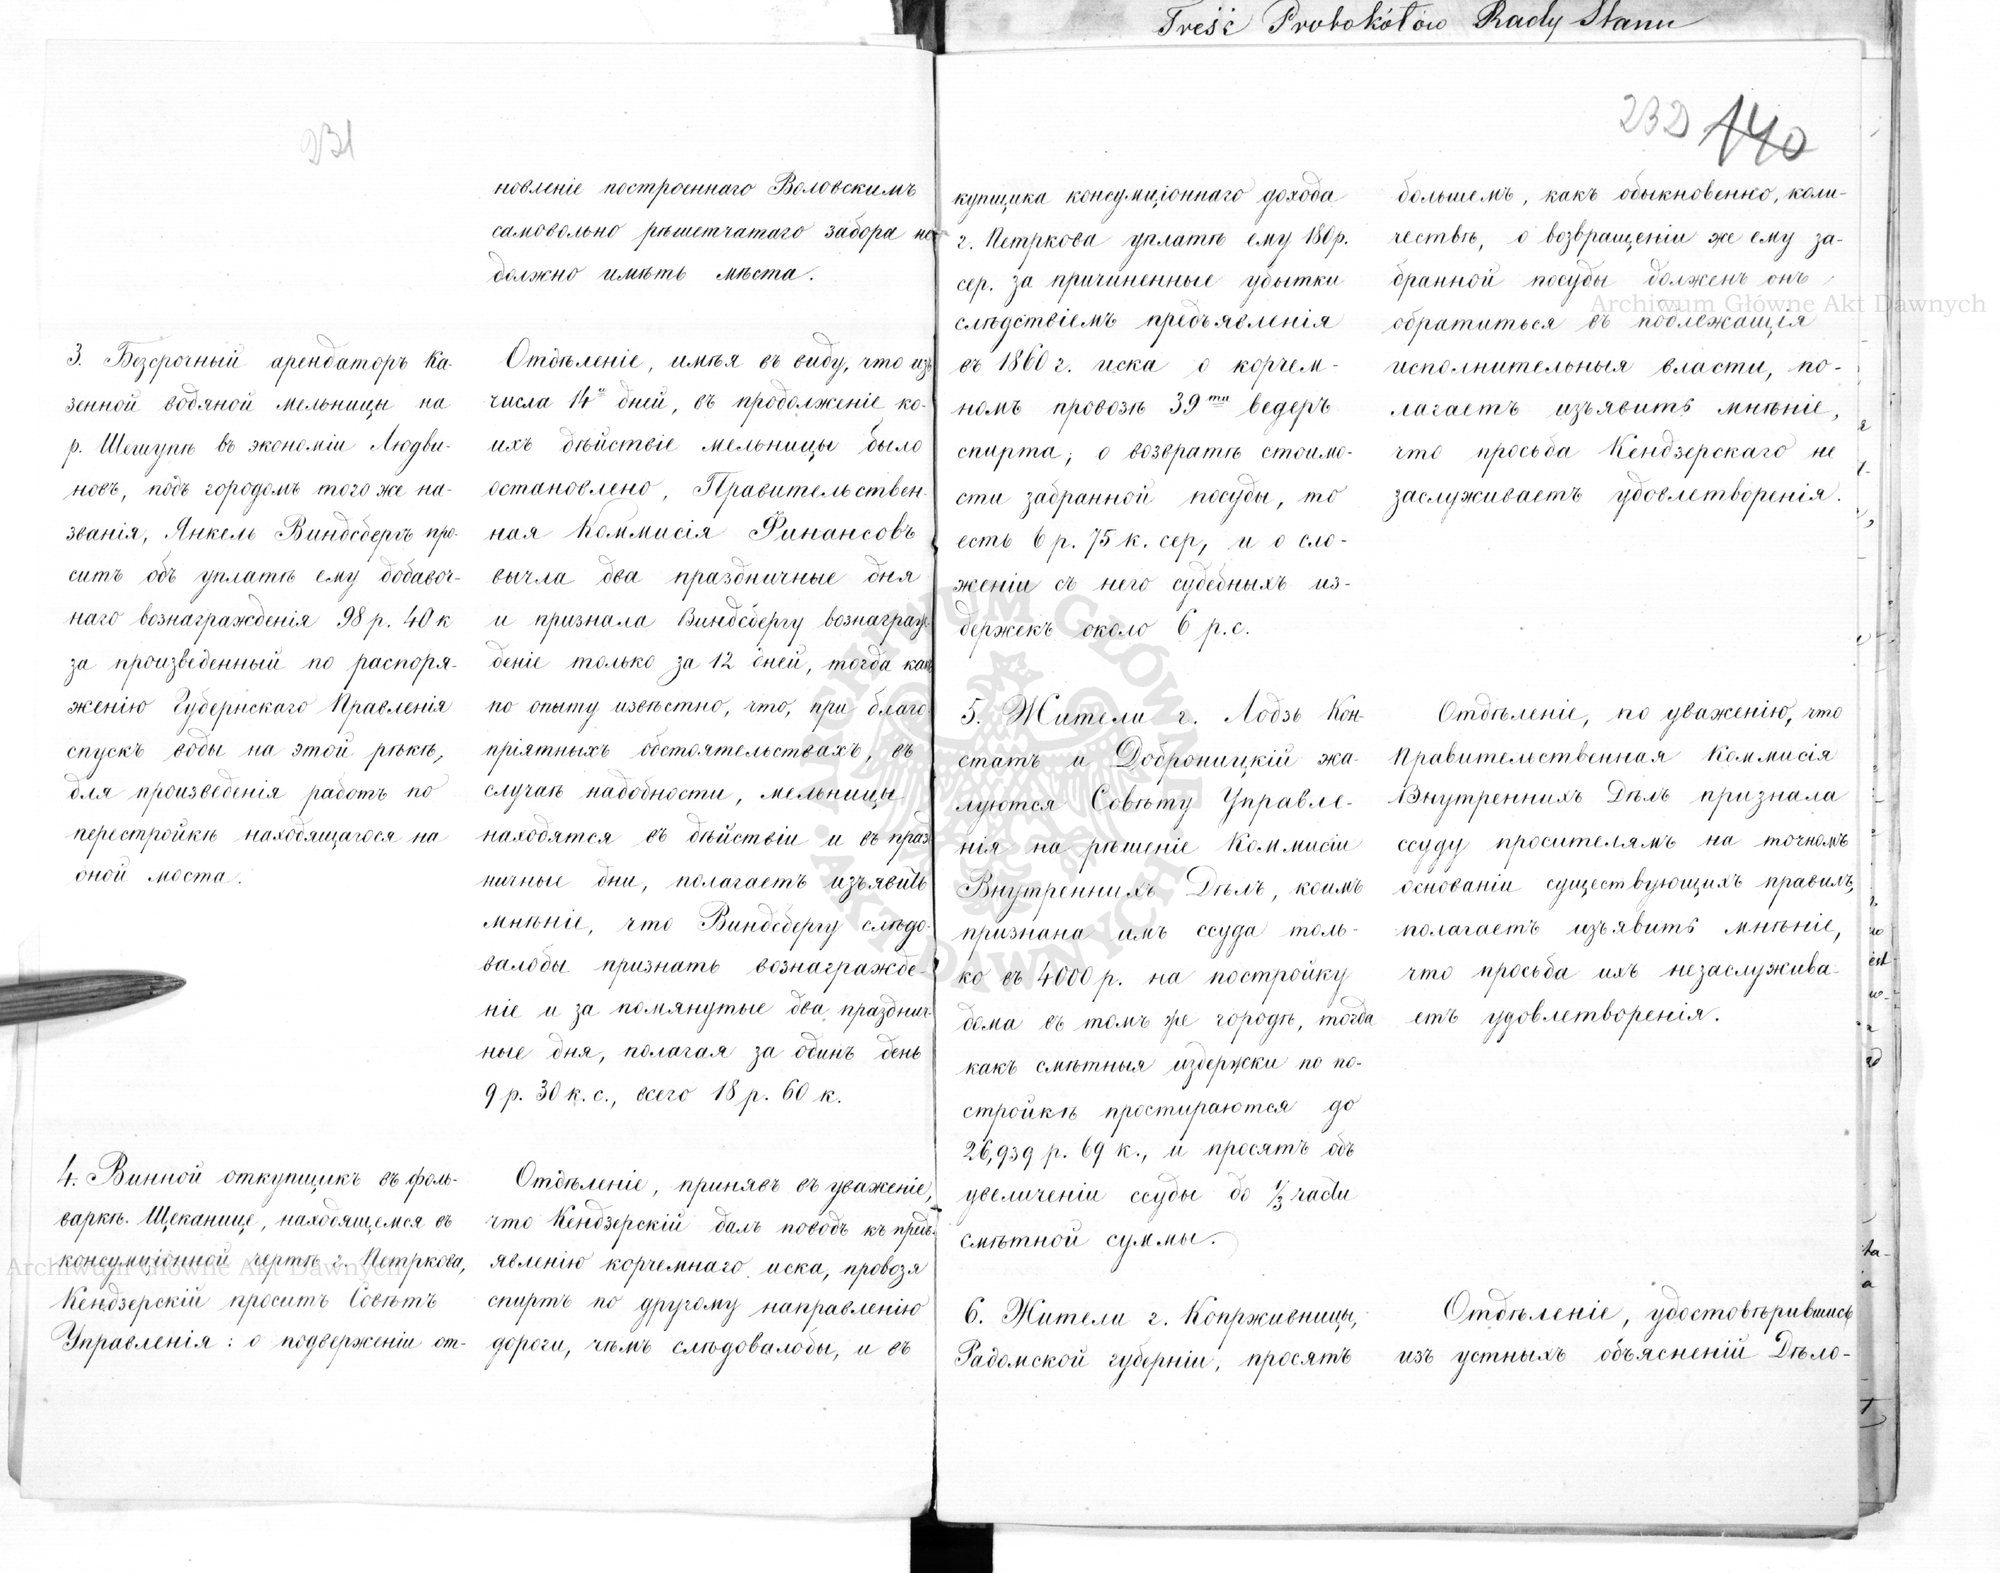 Treść Protokółów Rady Stanu
231
новленіе построеннаго Воловскимъ
самовольно рѣшетчатаго забора не
должно имѣть мѣста.
3. Безсрочный арендаторъ Ка-
зенной водяной мельницы на
р. Шешупѣ въ экономіи Людви-
новъ, подъ городомъ того же на-
званія, Янкель Виндсбергъ про-
ситъ объ уплатѣ ему добавоч-
наго вознагражденія 98 р. 40 к
за произведенный по распоря-
женію Губернскаго Правленія
спускъ воды на этой рѣкѣ,
для произведенія работъ по
перестройкѣ находящагося на
оной моста.
Отдѣленіе, имѣя въ виду, что изъ
числа 14и дней, въ продолженіе ко-
ихъ дѣйствіе мельницы было
остановлено, Правительствен-
ная Коммисія Финансовъ
вычла два праздничные дня
и признала Виндсбергу вознаграж-
деніе только за 12 дней, тогда какъ
по опыту извѣстно, что, при благо
пріятныхъ обстоятельствахъ, въ
случаѣ надобности, мельницы
находятся въ дѣйствіи и въ празд
ничные дни, полагаетъ изъявить
мнѣніе, что Виндсбергу слѣдо-
валобы признать вознагражде-
ніе и за помянутые два празднич-
ные дня, полагая за одинъ день
9 р. 30 к. с., всего 18 р. 60 к.
4. Винной откупщикъ въ фоль-
варкѣ Щеканице, находящемся въ
консумціонной чертѣ г. Петркова,
Кендзерскій проситъ Совѣтъ
Управленія: о подверженіи от-
Отдѣленіе, принявъ въ уваженіе,
что Кендзерскій далъ поводъ къ предъ-
явленію корчемнаго иска, провозя
спиртъ по другому направленію
дороги, чѣмъ слѣдовалобы, и въ
232 140
купщика консумціоннаго дохода
г. Петркова уплатѣ ему 180 р.
сер. за причиненные убытки
слѣдствіемъ предъявленія
въ 1860 г. иска о корчем-
номъ провозѣ 39ти ведеръ
спирта; о возвратѣ стоимо-
сти забранной посуды, то
есть 6 р. 75 к. сер, и о сло-
женіи съ него судебныхъ из-
держекъ около 6 р. с.
большемъ, какъ обыкновенно, коли-
чествѣ, о возвращеніи же ему за-
бранной посуды долженъ онъ
обратиться въ подлежащія
исполнительныя власти, по-
лагаетъ изъявить мнѣніе,
что просьба Кендзерскаго не
заслуживаетъ удовлетворенія.
5. Жители г. Лодзь Кон-
статъ и Доброницкій жа-
луются Совѣту Управле-
нія на рѣшеніе Коммисіи
Внутреннихъ Дѣлъ, коимъ
признана имъ ссуда толь-
ко въ 4000 р. на постройку
дома въ томъ же городѣ, тогда
какъ смѣтныя издержки по по-
стройкѣ простираются до
26,939 р. 69 к., и просятъ объ
увеличеніи ссуды до 1/3 части
смѣтной суммы.
Отдѣленіе, по уваженію, что
Правительственная Коммисія
Внутреннихъ Дѣлъ признала
ссуду просителямъ на точномъ
основаніи существующихъ правилъ,
полагаетъ изъявить мнѣніе,
что просьба ихъ незаслужива-
етъ удовлетворенія.
6. Жители г. Копрживницы,
Радомской губерніи, просятъ
Отдѣленіе, удостовѣрившись
изъ устныхъ объясненій Дѣло-
Archiwum Główne Akt Dawnych
Archiwum Główne Akt Dawnych
ARCHIWUM GŁÓWNE
AKT DAWNYCH